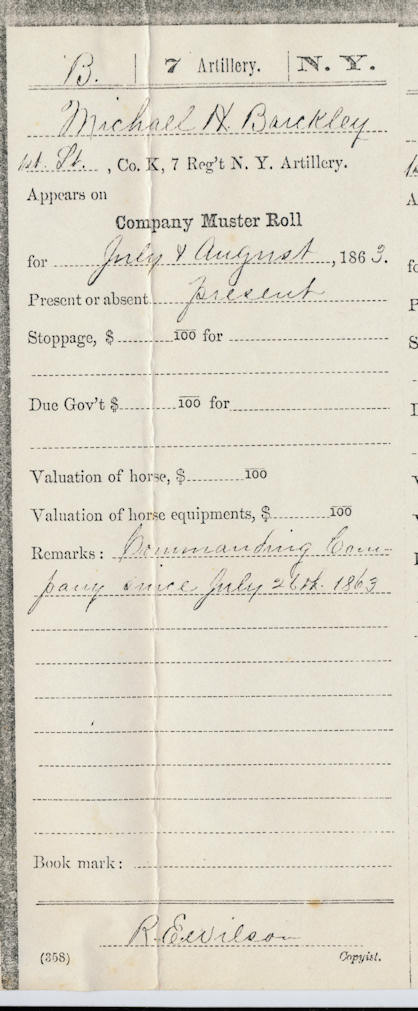 B. | 7 Artillery. | N. Y.
Michael H. Barckley
1st. Lt. , Co. K, 7 Reg't N. Y. Artillery.
Appears on
Company Muster Roll
for July & August , 1863.
Present or absent present
Stoppage, $ 100 for
Due Gov't $ 100 for
Valuation of horse, $ 100
Valuation of horse equipments, $ 100
Remarks: Commanding Com-
pany since July 26th. 1863
Book mark:
R. E. Wilson
(358) Copyist.